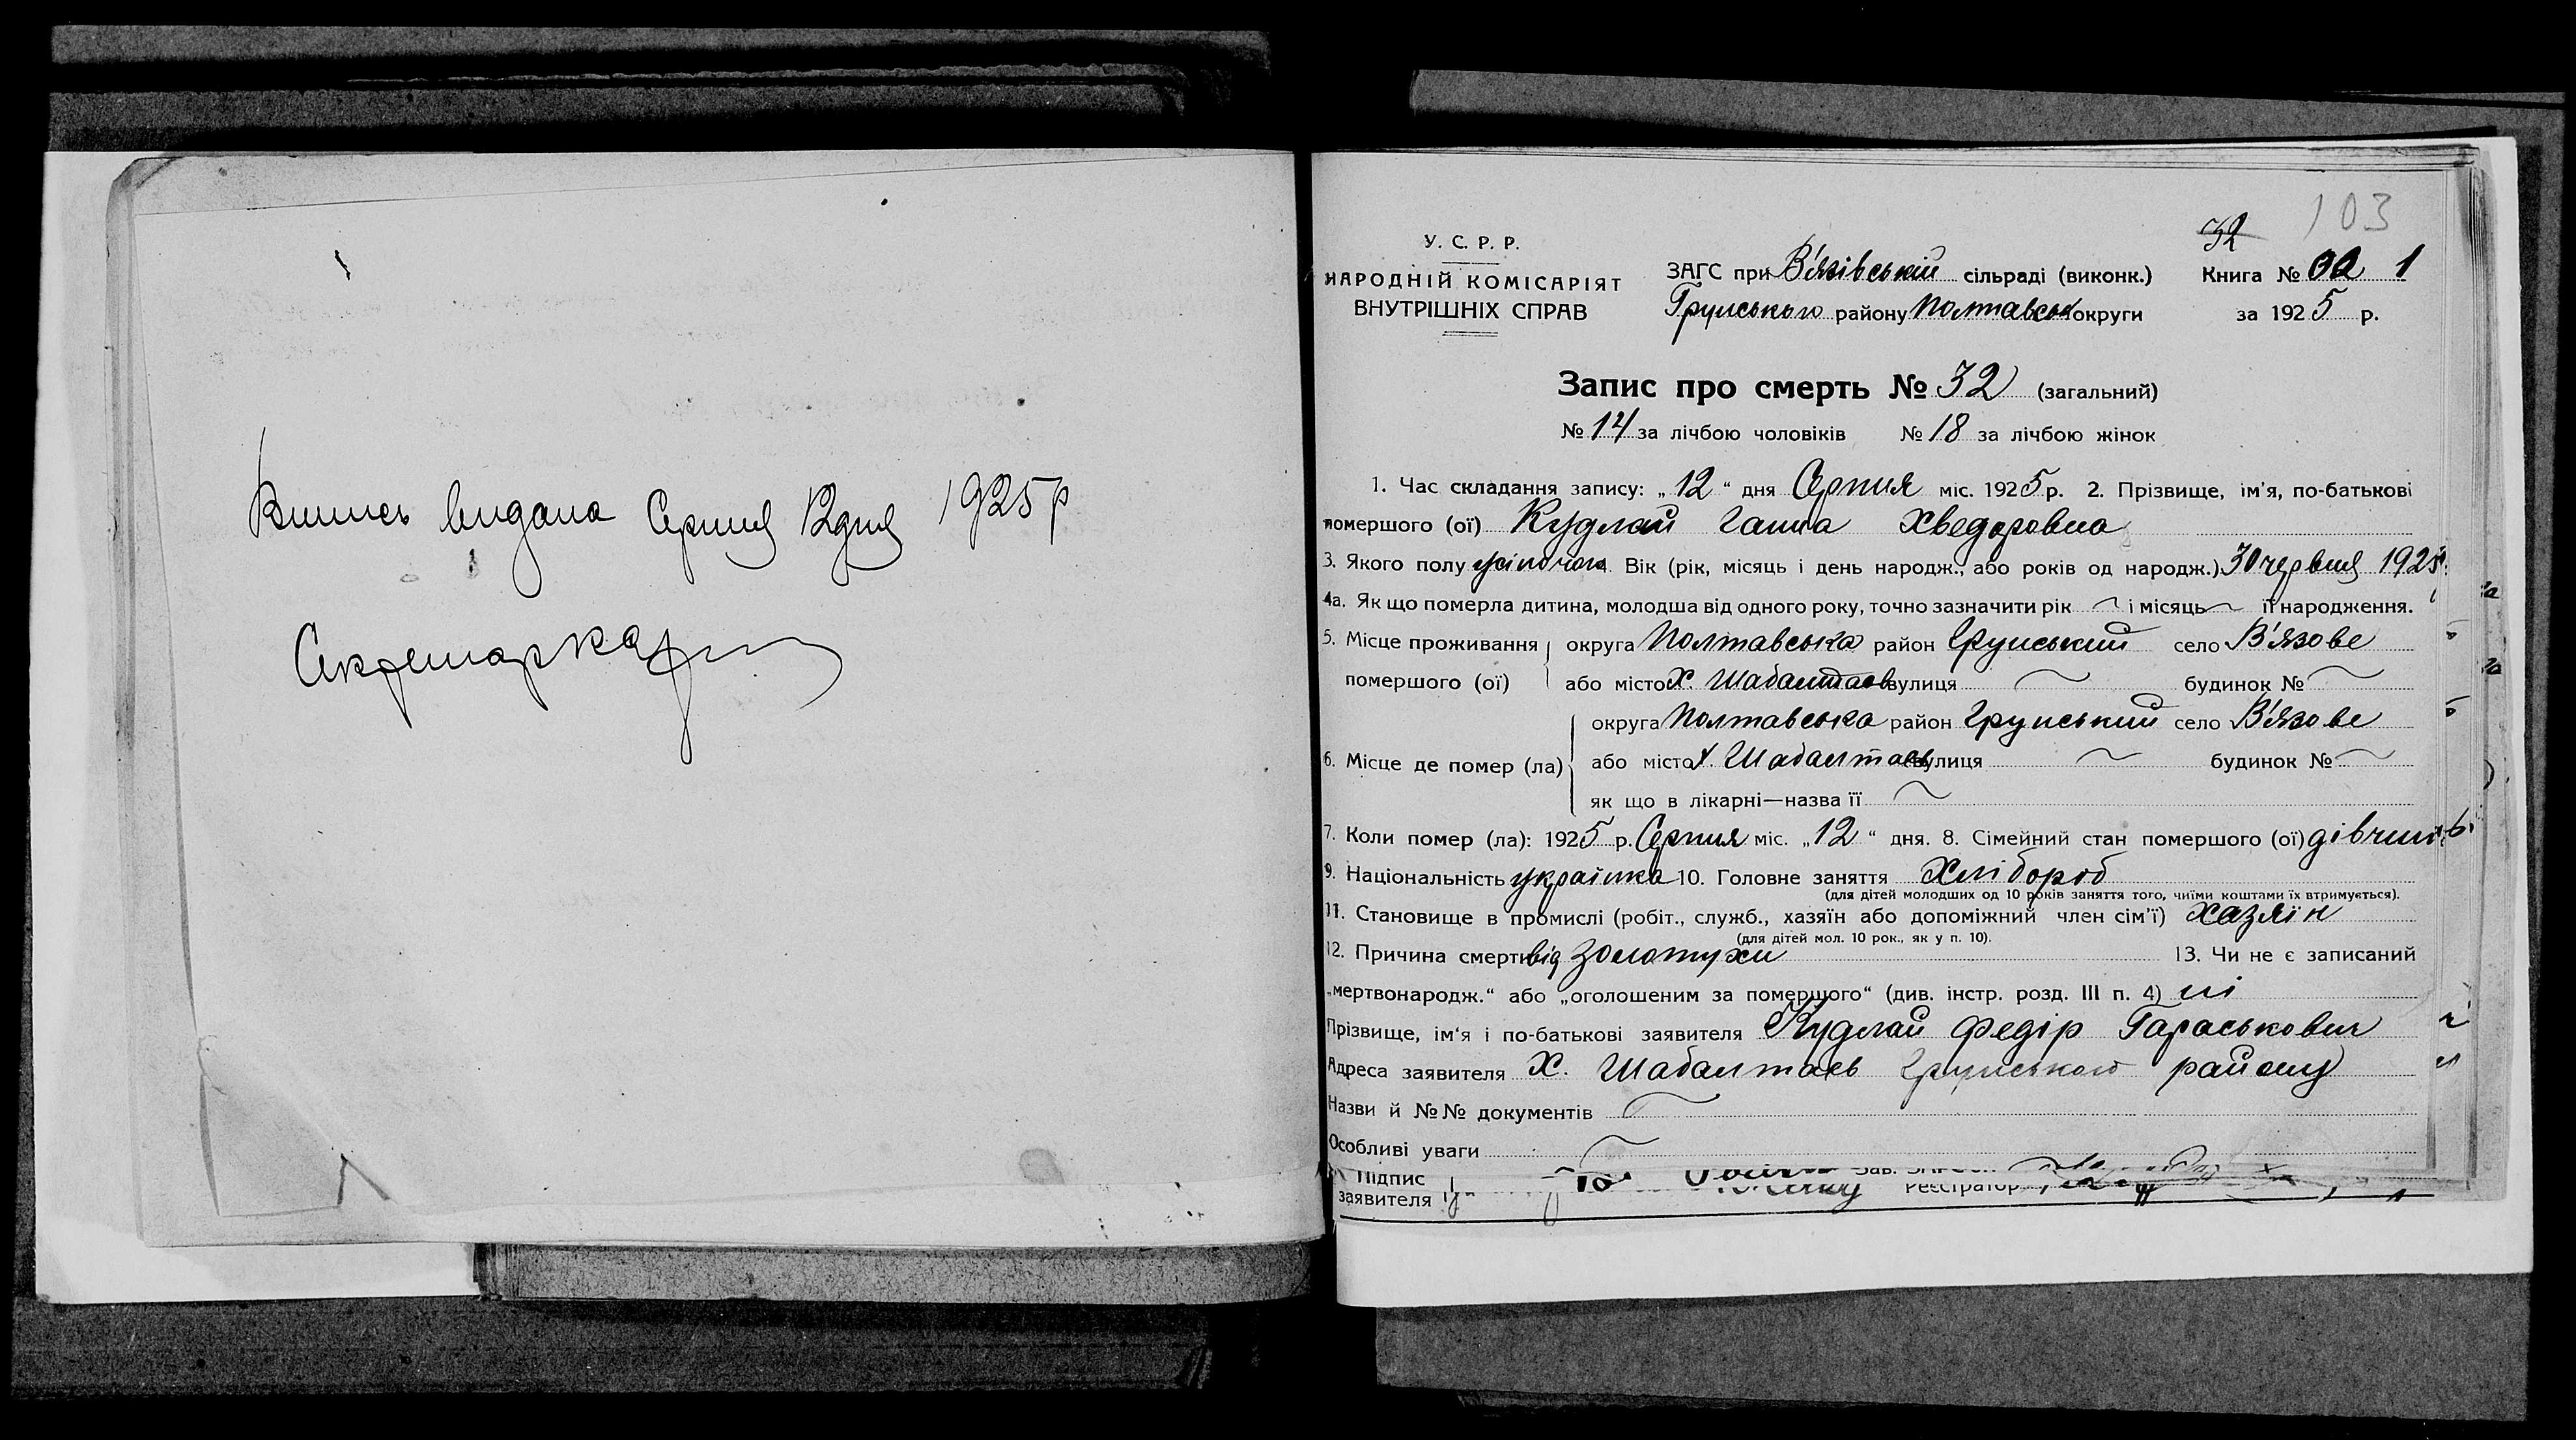 Випись видана Серпня 12 дня 1925 р
Секретар
103
32
У. С. Р. Р.
НАРОДНІЙ КОМІСАРІЯТ
ВНУТРІШНІХ СПРАВ
ЗАГС при В'язівській сільраді (виконк.) Книга № 1
Грунського району Полтавськ округи за 1925 р.
Запис про смерть № 32 (загальний)
№ 14 за лічбою чоловіків № 18 за лічбою жінок
1. Час складання запису: „12" дня Серпня міс. 1925 р. 2. Прізвище, ім'я, по-батькові
помершого (ої) Кудлай Ганна Хведоровна
3. Якого полу жіночого Вік (рік, місяць і день народж., або років од народж.) 30 червня 1925
4а. Як що померла дитина, молодша від одного року, точно зазначити рік ~ і місяць ~ її народження.
5. Місце проживання округа Полтавська район Грунський село В'язове
помершого (ої) або місто Х. Шабалтаєв вулиця ~ будинок № ~
округа Полтавська район Грунський село В'язове
6. Місце де помер (ла) або місто х. Шабалтаєв вулиця ~ будинок № ~
як що в лікарні—назва її ~
7. Коли помер (ла): 1925 р. Серпня міс. „12" дня. 8. Сімейний стан помершого (ої)
9. Національність українка 10. Головне заняття Хлібороб
(для дітей молодших од 10 років заняття того, чиїми коштами їх втримується).
11. Становище в промислі (робіт., служб., хазяїн або допоміжний член сім'ї) хазяїн
(для дітей мол. 10 рок., як у п. 10).
12. Причина смерти від золотухи 13. Чи не є записаний
„мертвонародж." або „оголошеним за помершого" (див. інстр. розд. III п. 4) ні
Прізвище, ім'я і по-батькові заявителя Кудлай Федір Тараськович
Адреса заявителя Х. Шабалтаєв Грунського району
Назви й №№ документів ~
Особливі уваги ~
Підпис
заявителя Реєстратор